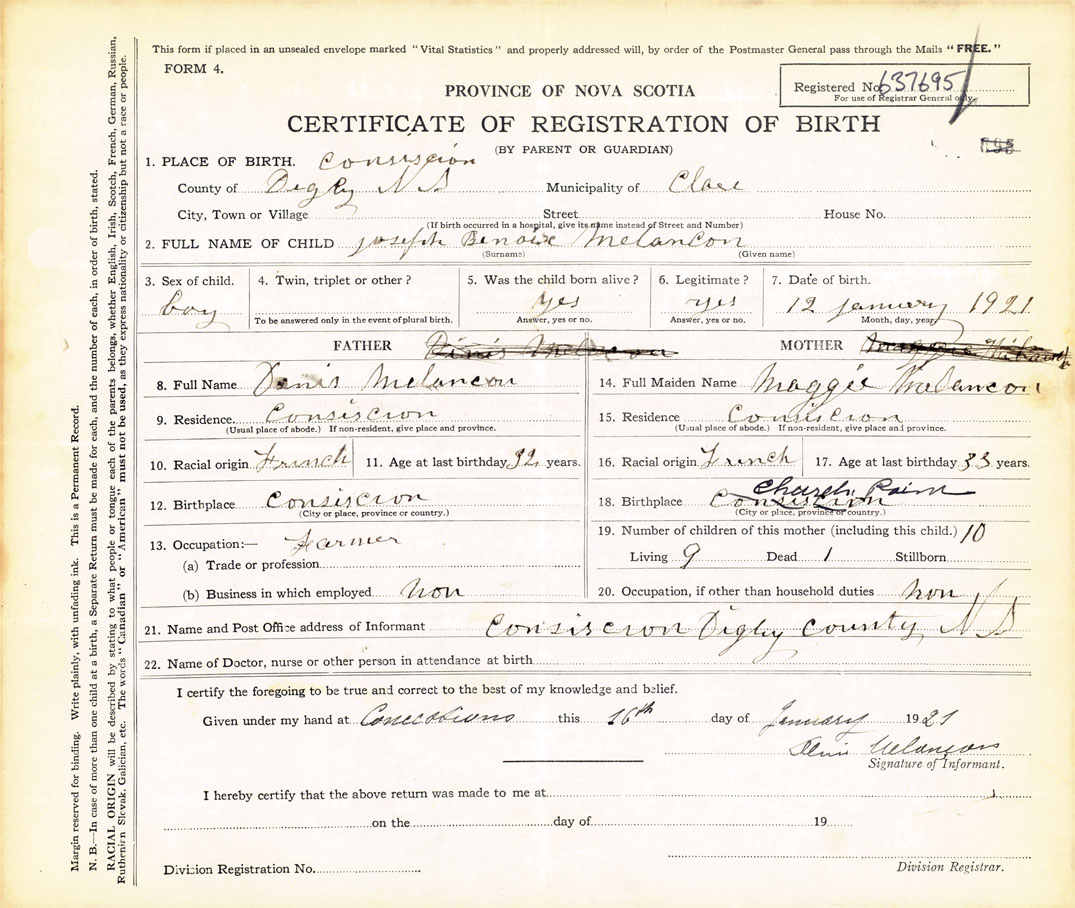 This form if placed in an unsealed envelope marked "Vital Statistics" and properly addressed will, by order of the Postmaster General pass through the Mails "FREE."
FORM 4.
Registered No. 637695
For use of Registrar General only.
PROVINCE OF NOVA SCOTIA
CERTIFICATE OF REGISTRATION OF BIRTH
(BY PARENT OR GUARDIAN)
1. PLACE OF BIRTH. Consiscion
County of Digby N S Municipality of Clare
City, Town or Village Street House No.
(If birth occurred in a hospital, give its name instead of Street and Number)
2. FULL NAME OF CHILD joseph Benoix Melancon
(Surname) (Given name)
3. Sex of child. 4. Twin, triplet or other? 5. Was the child born alive? 6. Legitimate? 7. Date of birth.
boy yes yes 12 january 1921
To be answered only in the event of plural birth. Answer, yes or no. Answer, yes or no. Month, day, year
FATHER Dinis Melancon MOTHER Maggie
8. Full Name Denis Melancon 14. Full Maiden Name Maggie Melancon
9. Residence. Consiscion 15. Residence Consiscion
(Usual place of abode.) If non-resident, give place and province. (Usual place of abode.) If non-resident, give place and province.
10. Racial origin French 11. Age at last birthday 32 years. 16. Racial origin French 17. Age at last birthday 33 years.
12. Birthplace Consiscion 18. Birthplace Consiscion Church Point
(City or place, province or country.) (City or place, province or country.)
13. Occupation:— Farmer 19. Number of children of this mother (including this child.) 10
(a) Trade or profession Living 9 Dead 1 Stillborn
(b) Business in which employed non 20. Occupation, if other than household duties non
21. Name and Post Office address of Informant Consiscion Digby County N S
22. Name of Doctor, nurse or other person in attendance at birth
I certify the foregoing to be true and correct to the best of my knowledge and belief.
Given under my hand at this 16th day of January 1921
Melançon
Signature of Informant.
I hereby certify that the above return was made to me at
on the day of 19
Division Registration No. Division Registrar.
Margin reserved for binding. Write plainly, with unfading ink. This is a Permanent Record.
N. B.—In case of more than one child at a birth, a Separate Return must be made for each, and the number of each, in order of birth, stated.
RACIAL ORIGIN will be described by stating to what people or tongue each of the parents belongs, whether English, Irish, Scotch, French, German, Russian,
Ruthenian Slovak, Galician, etc. The words "Canadian" or "American" must not be used, as they express nationality or citizenship but not a race or people.